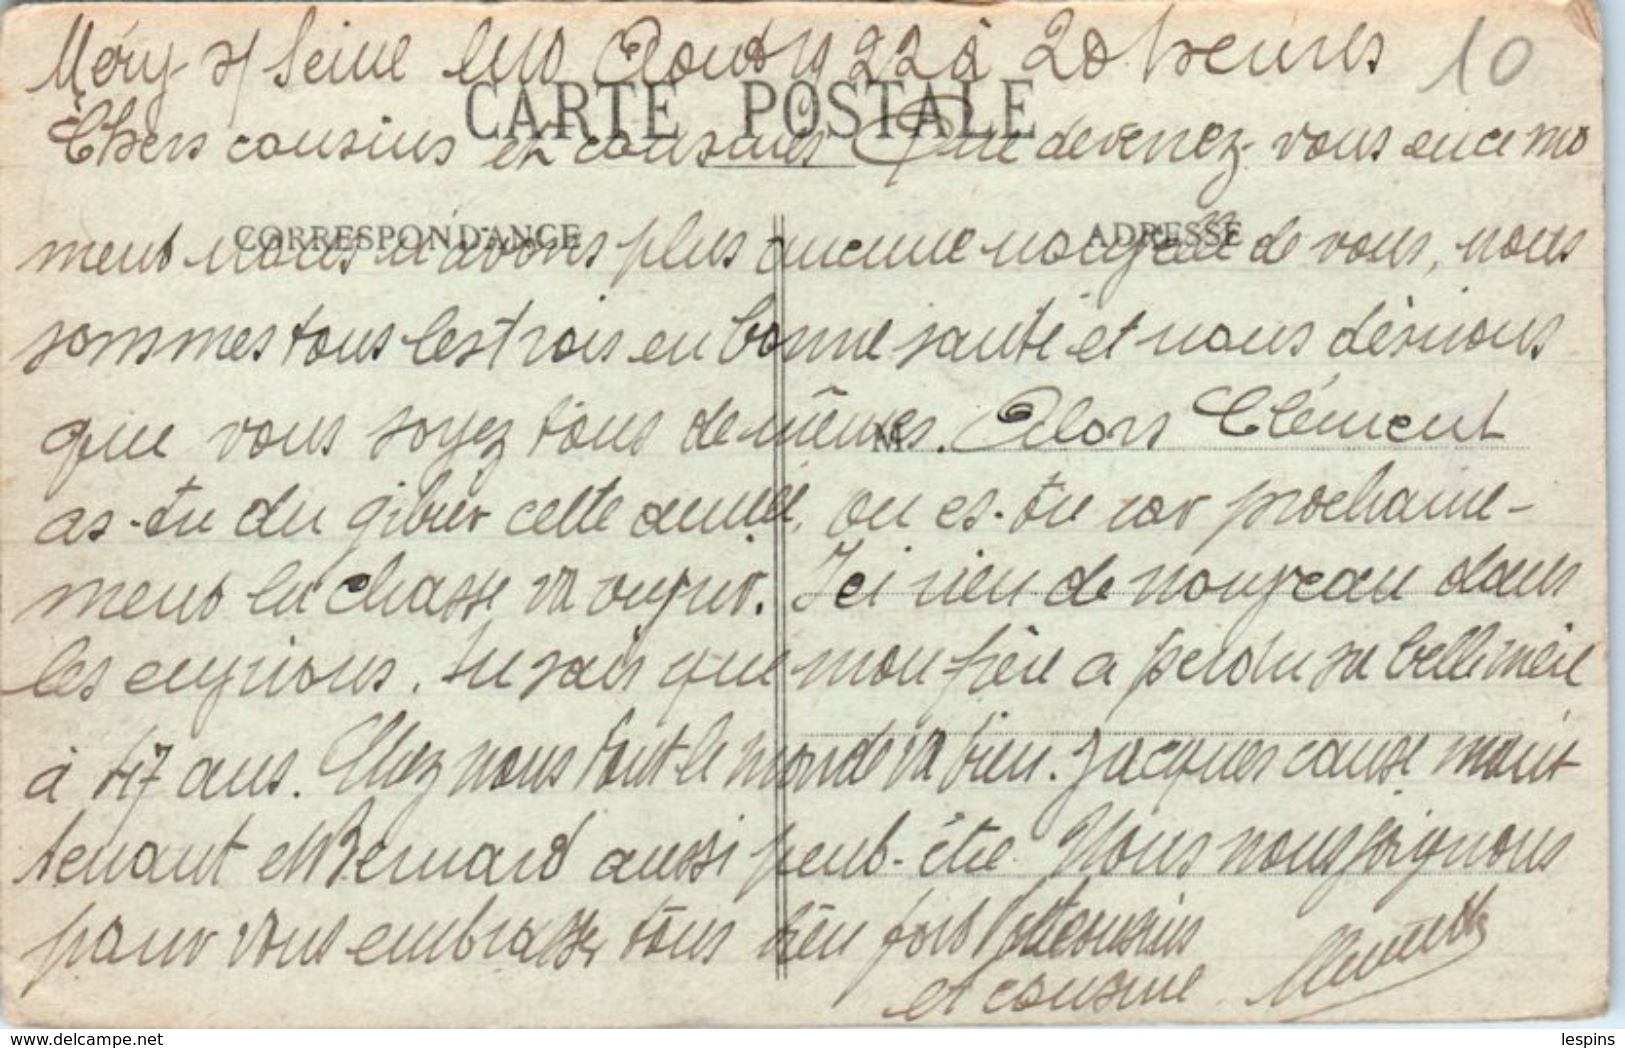 Méry s/ Seine le 10 Aout 1922 à 20 heures
10
CARTE POSTALE
Chers cousins et cousines Que devenez-vous en ce mo
CORRESPONDANCE
ADRESSE
ment nous n'avons plus aucune nouvelle de vous, nous
sommes tous les trois en bonne santé et nous désirons
que vous soyez tous de mêmes. Alors Clément
M
as-tu du gibier cette année, ou es-tu car prochaine-
ment la chasse va ouvrir. Ici rien de nouveau dans
les environs. tu sais que mon frère a perdu sa belle mère
à 47 ans. Chez nous tout le monde va bien. Jacques cause maint
tenant et Bernard aussi peut-être. Nous nous joignons
pour vous embrasser tous bien fort Votre cousins
et cousine
lespins